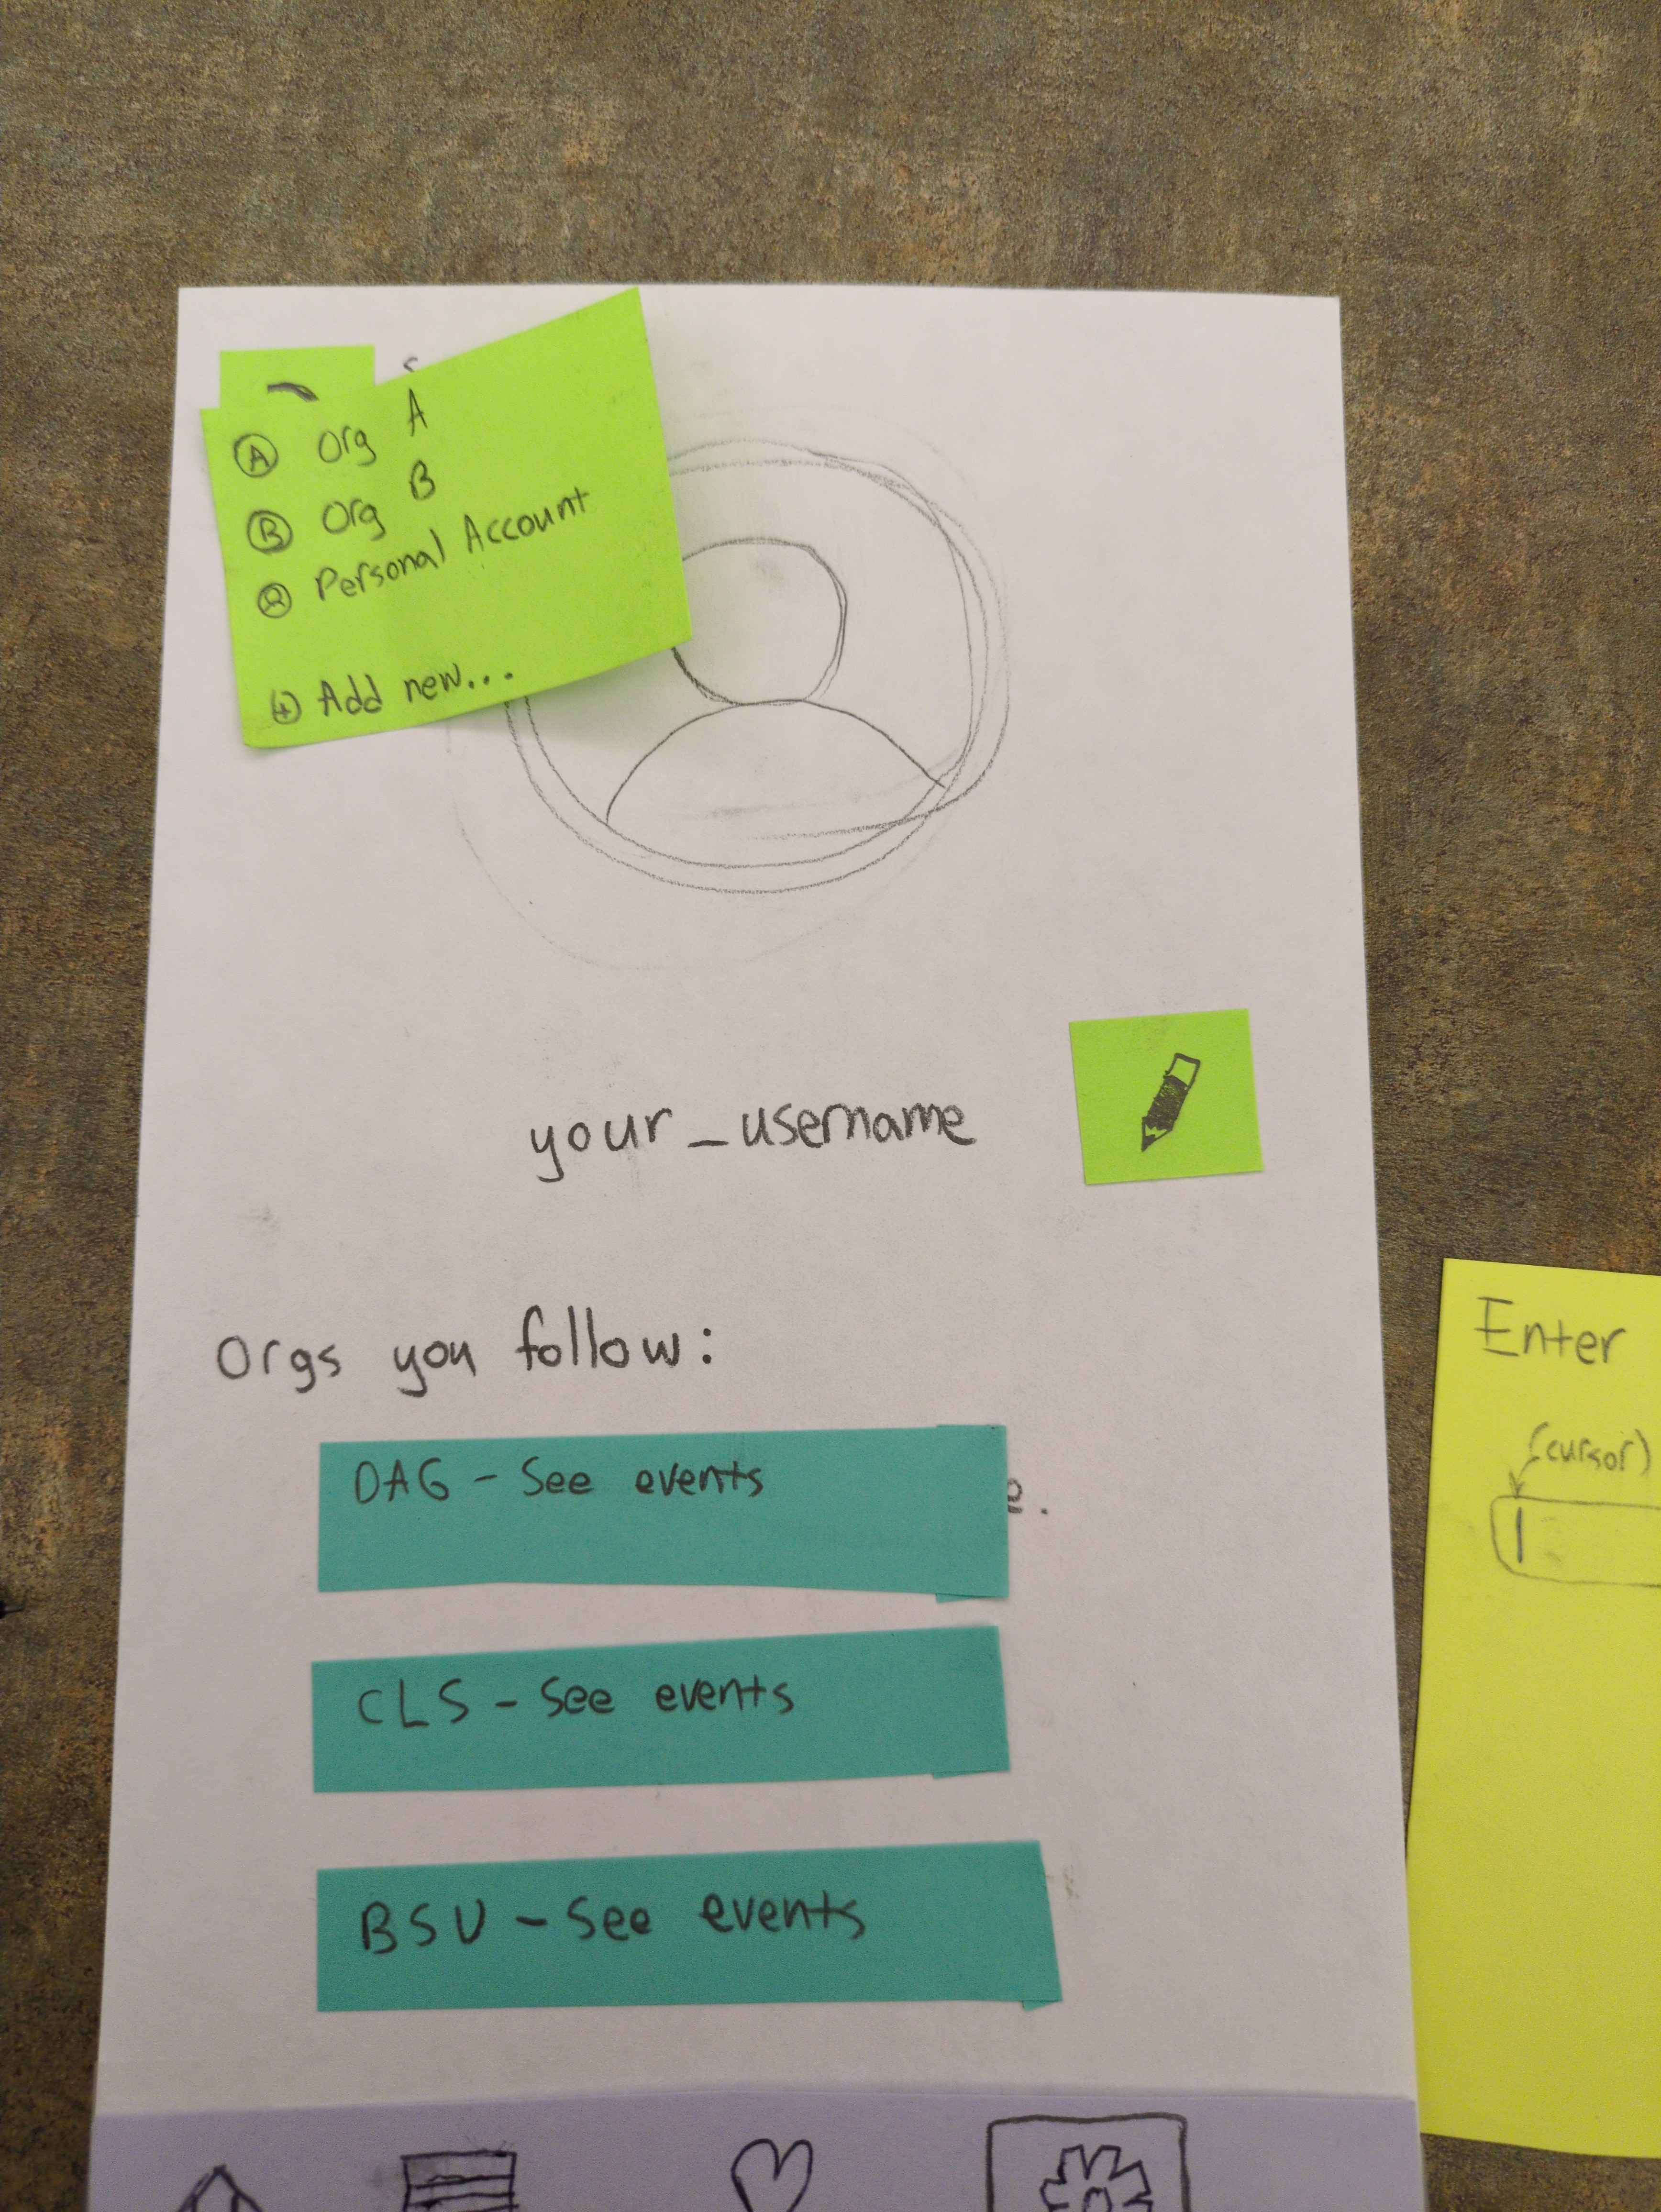 A Org A
B Org B
Personal Account
+ Add new...
your_username
Orgs you follow:
DAG - See events
e.
CLS - See events
BSU - See events
Enter
(cursor)